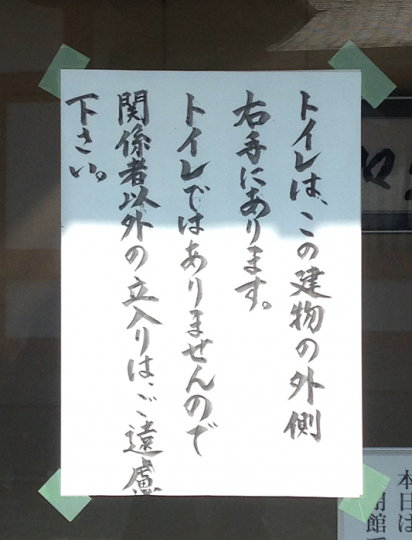 トイレは、この建物の外側
右手にあります。
トイレではありませんので
関係者以外の立入りは、ご遠慮
下さい。
本日は